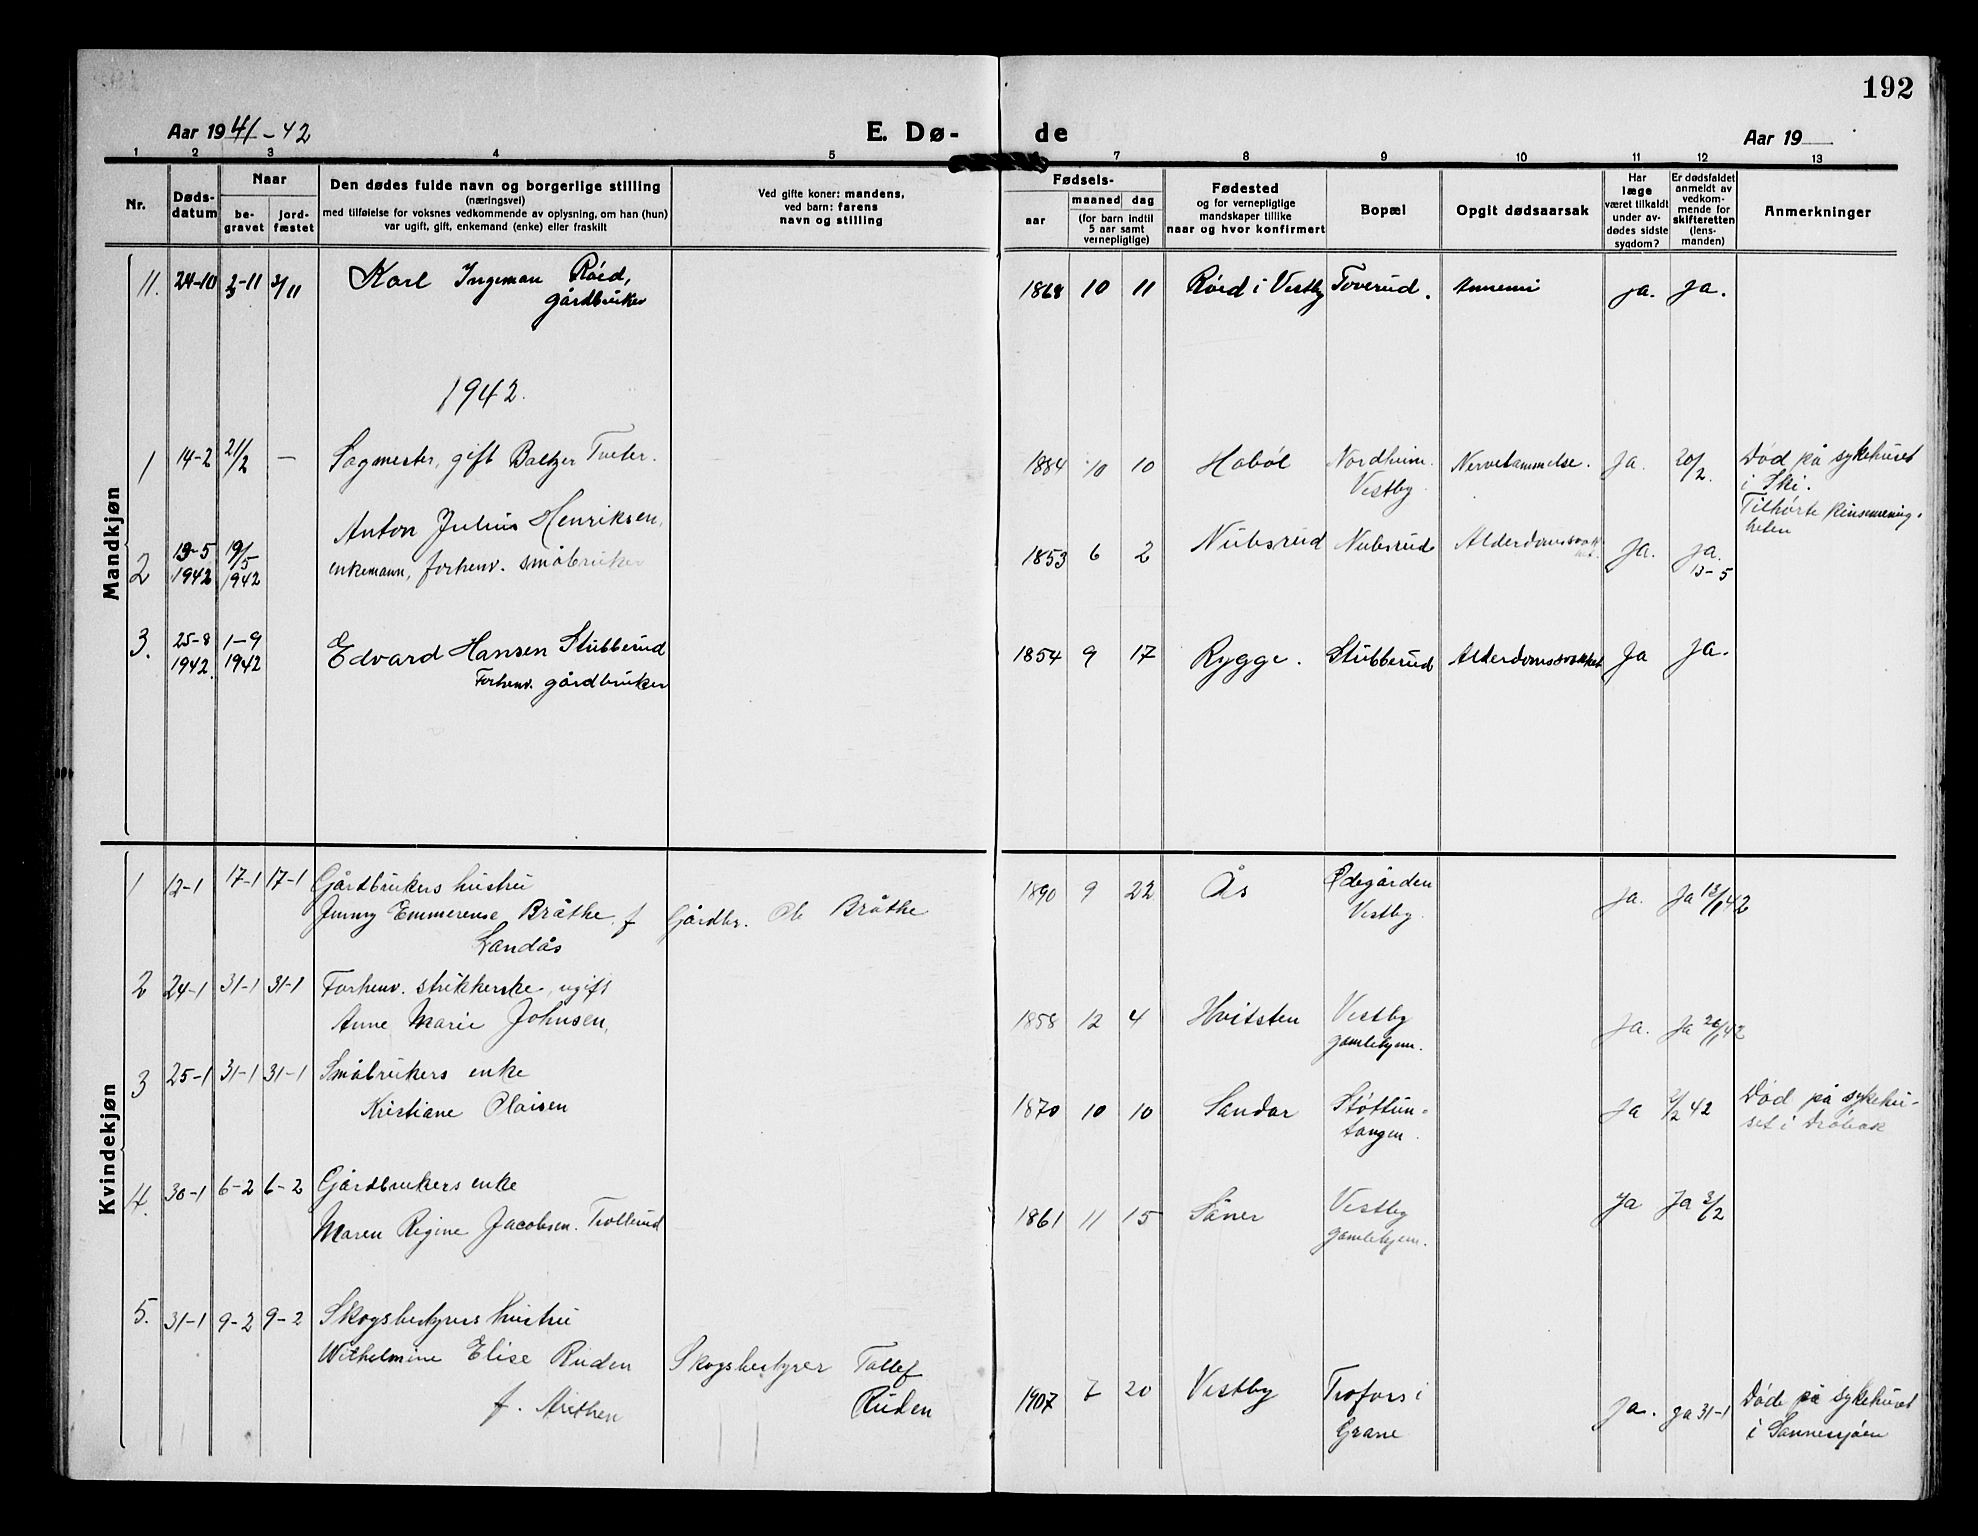 192
Aar 1941-42
E. Dø-
de
Aar 19
1 2 3 4 5 7 8 9 10 11 12 13
Nr.
Døds-
datum
Naar
be-
gravet
jord-
fæstet
Den dødes fulde navn og borgerlige stilling
(næringsvei)
med tilføielse for voksnes vedkommende av oplysning, om han (hun)
var ugift, gift, enkemand (enke) eller fraskilt
Ved gifte koner: mandens,
ved barn: farens
navn og stilling
Fødsels-
aar
maaned dag
(for barn indtil
5 aar samt
vernepligtige)
Fødested
og for vernepligtige
mandskaper tillike
naar og hvor konfirmert
Bopæl
Opgit dødsaarsak
Har
læge
været tilkaldt
under av-
dødes sidste
sygdom?
Er dødsfaldet
anmeldt av
vedkom-
mende for
skifteretten
(lens-
manden)
Anmerkninger
Mandkjøn
11. 24-10 2-11 3/11 Karl Ingeman Røed,
gårdbruker
1868 10 11 Røed i Vestby Toverud. Annemi ja. ja.
1942.
1 14-2 21/2 — Sagmester, gift Baltzer Tveter.
1884 10 10 Hobøl Nordheim. Nervebetammelse. Ja. 20/2. Død på sykehuset
Vestby. i Ski.
Tilhørte Pinsemenig-
heten
2 13-5 19/5 Anton Julius Henriksen,
1942 1942 enkemann, forhenv. småbruker
1853 6 2 Nubsrud Nubsrud Alderdomssvakhet. Ja. ja.
13-5
3. 25-8 1-9 Edvard Hansen Stubberud
1942. 1942 Forhenv. gårdbruker
1854 9 17 Rygge. Stubberud Alderdomssvakhet Ja ja.
Kvindekjøn
1 12-1 17-1 17-1 Gårdbrukers hustru
Jenny Emmerense Bråthe, f Gårdbr. Ole Bråthe
Landås
1890 9 22 Ås Ødegården ja. Ja 13/1 42
Vestby.
2 24-1 31-1 31-1 Forhenv. strikkerske, ugift
Anne Marie Johnsen,
1858 12 4 Hvitsten Vestby ja. Ja 26/1 42
gamlehjem.
3 25-1 31-1 31-1 Småbrukers enke
Kristiane Olaisen
1870 10 10 Sandar Støttun- Ja 2/2 42 Død på sykehu-
tangen. set i Drøbak
4. 30-1 6-2 6-2 Gårdbrukers enke
Maren Regine Jacobsen. Trollerud
1861 11 15 Såner Vestby Ja Ja 3/2
gamlehjem.
5. 31-1 9-2 9-2 Skogbestyrers hustru
Wilhelmine Elise Ruden Skogsbestyrer Tollef
f. Ruden
1907 7 20 Vestby Trofors i ja. ja 31-1 Døde på sykehuset
Grane i Sannessjøen